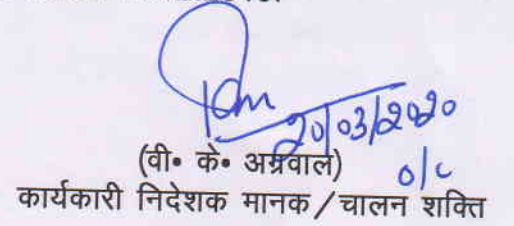 20/03/2020
(वी॰ के॰ अग्रवाल)
o/c
कार्यकारी निदेशक मानक/चालन शक्ति